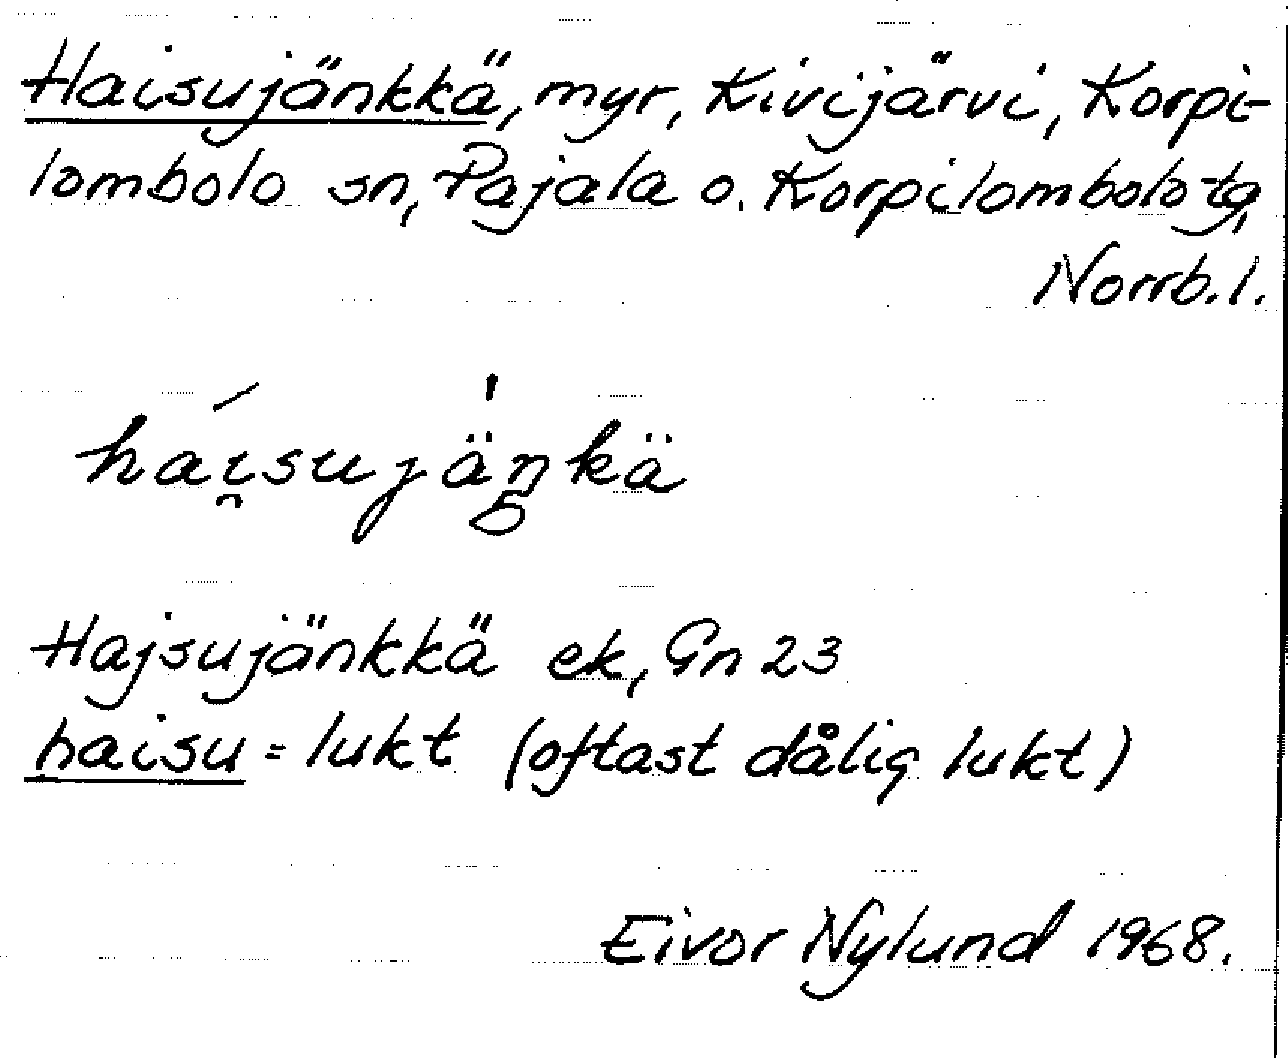 Haisujänkkä, myr, Kivijärvi, Korpi-
lombolo sn, Pajala o. Korpilombolo tg,
Norrb.l.
hai̯sujäŋkä
Hajsujänkkä ek, Gn 23
haisu = lukt (oftast dålig lukt)
Eivor Nylund 1968.